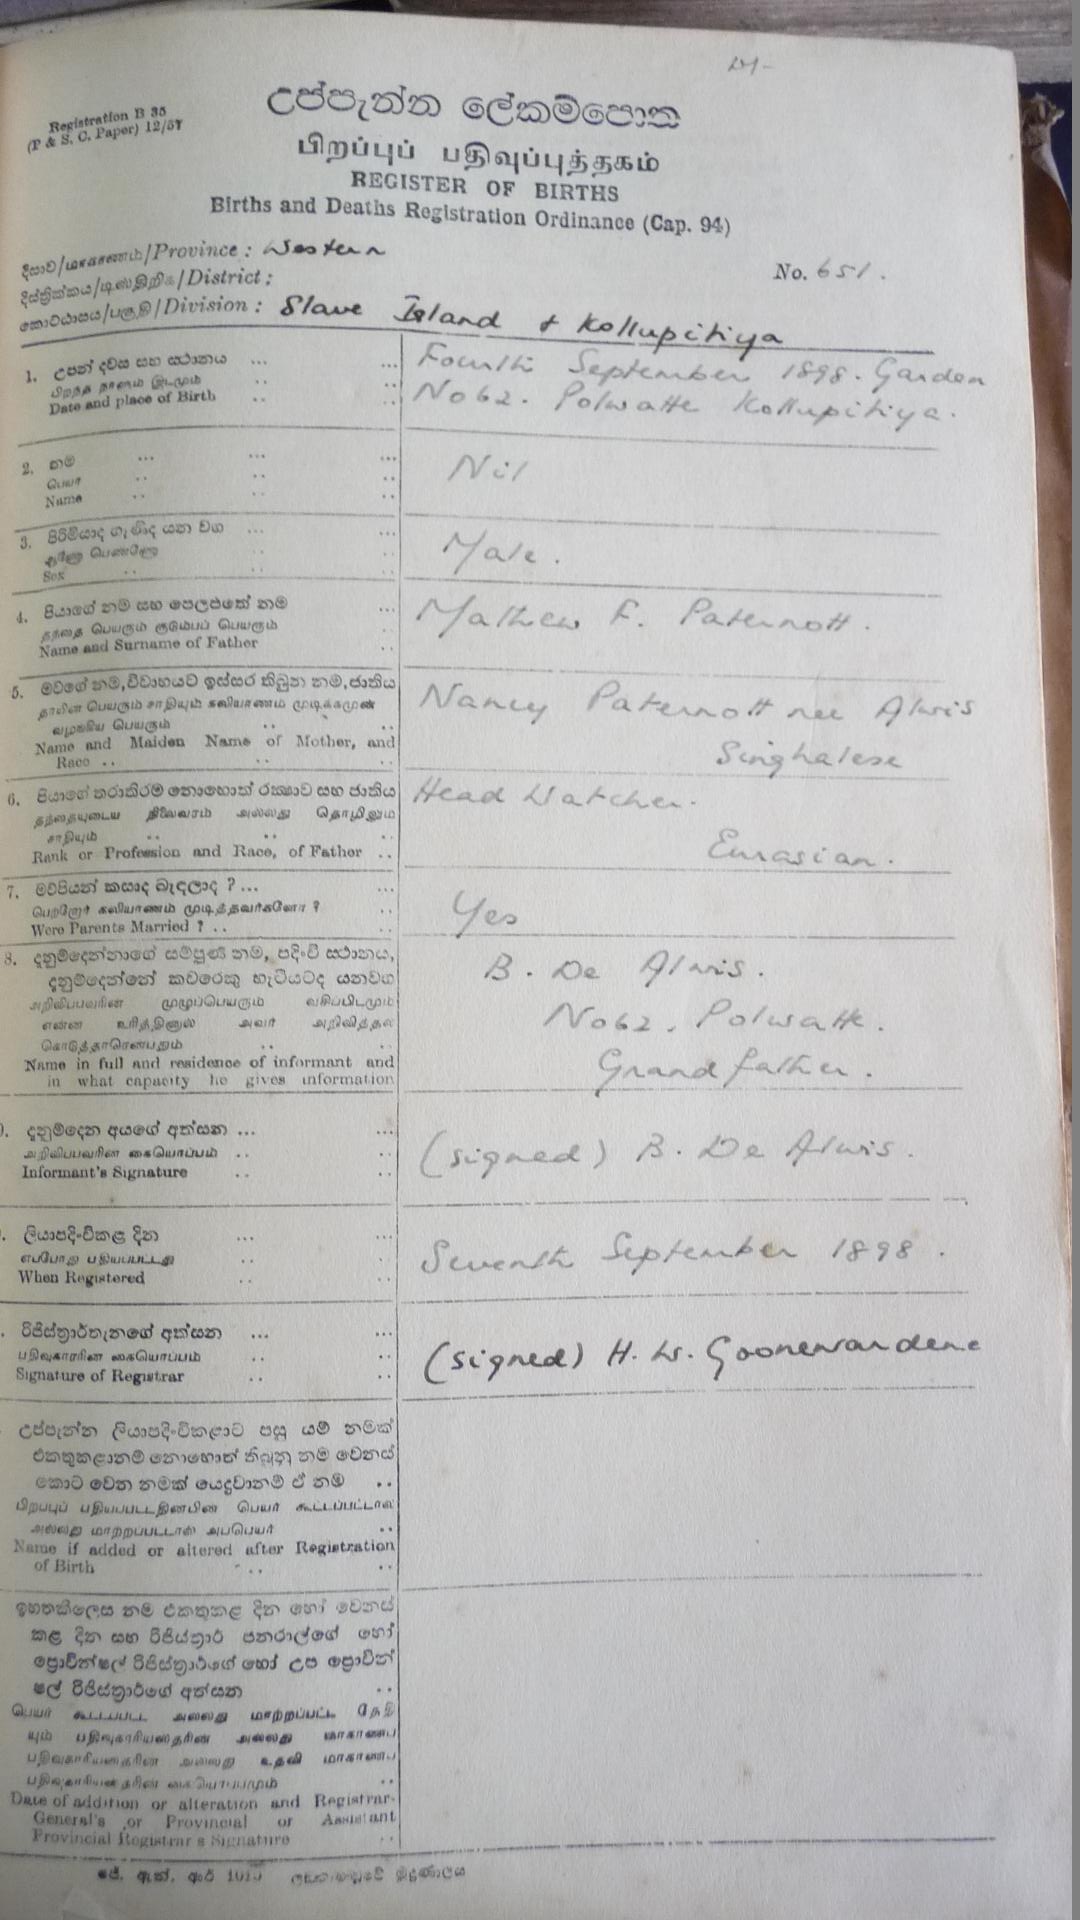 Registration B 35
(P & S. C. Paper) 12/57
උප්පැන්න ලේකම්පොත
பிறப்புப் பதிவுப்புத்தகம்
REGISTER OF BIRTHS
Births and Deaths Registration Ordinance (Cap. 94)
දිසාව/மாகாணம்/Province : Western
No. 651.
දිස්ත්‍රික්කය/டிஸ்திறிக்/District :
කොට්ඨාසය/பகுதி/Division : Slave Island & Kollupitiya
1. උපන් දවස සහ ස්ථානය ... ... Fourth September 1898. Garden
பிறந்த நாளும் இடமும்
Date and place of Birth No 62. Polwatte Kollupitiya.
2. නම ... ... ...
பெயர் Nil
Name
3. පිරිමියාද ගැණිද යන වග ... ...
ஆணோ பெண்ணோ Male.
Sex
4. පියාගේ නම සහ පෙලපතේ නම ... Mathew F. Paternott.
தந்தை பெயரும் குடும்பப் பெயரும்
Name and Surname of Father
5. මවගේ නම, විවාහයට ඉස්සර තිබුන නම, ජාතිය
தாயின் பெயரும் சாதியும் கலியாணம் முடிக்கமுன் Nancy Paternott nee Alwis
வழங்கிய பெயரும்
Name and Maiden Name of Mother, and Singhalese
Race
6. පියාගේ තරාතිරම නොහොත් රක්ෂාව සහ ජාතිය Head Watcher.
தந்தையுடைய நிலைவரம் அல்லது தொழிலும்
சாதியும்
Rank or Profession and Race, of Father Eurasian.
7. මව්පියන් කසාද බැඳලාද ? ... ...
பெற்றோர் கலியாணம் முடித்தவர்களோ ? Yes
Were Parents Married ?
8. දැනුම්දෙන්නාගේ සම්පූර්ණ නම, පදිංචි ස්ථානය,
දැනුම්දෙන්නේ කවරෙකු හැටියටද යනවග B. De Alwis.
அறிவிப்பவரின் முழுப்பெயரும் வசிப்பிடமும்
என்ன உரித்தினால் அவர் அறிவித்தல் No 62. Polwatte.
கொடுத்தாரென்பதும்
Name in full and residence of informant and Grandfather.
in what capacity he gives information
දැනුම්දෙන අයගේ අත්සන ... ...
அறிவிப்பவரின் கையொப்பம் (signed) B. De Alwis.
Informant's Signature
ලියාපදිංචිකළ දින ... ...
எப்போது பதியப்பட்டது Seventh September 1898.
When Registered
රිජිස්ත්‍රාර්තැනගේ අත්සන ... ...
பதிவுகாரரின் கையொப்பம் (signed) H. W. Goonewardene
Signature of Registrar
උප්පැන්න ලියාපදිංචිකළාට පසු යම් නමක්
එකතුකළානම් නොහොත් තිබුනු නම වෙනස්
කොට වෙන නමක් යෙදුවානම් ඒ නම
பிறப்புப் பதியப்பட்டதின்பின் பெயர் கூட்டப்பட்டால்
அல்லது மாற்றப்பட்டால் அப்பெயர்
Name if added or altered after Registration
of Birth
ඉහතකීලෙස නම එකතුකළ දින හෝ වෙනස්
කළ දින සහ රිජිස්ත්‍රාර් ජනරාල්ගේ හෝ
ප්‍රොවින්ෂල් රිජිස්ත්‍රාර්ගේ හෝ උප ප්‍රොවින්
ෂල් රිජිස්ත්‍රාර්ගේ අත්සන
பெயர் கூட்டப்பட்ட அல்லது மாற்றப்பட்ட தேதி
யும் அல்லது மாகாணப்
அல்லது உதவி மாகாணப்
கையொப்பமும்
Date of addition or alteration and Registrar-
General's or Provincial or Assistant
Provincial Registrar's Signature
ජේ. ඇන්. ආර් මුද්‍රණාලය